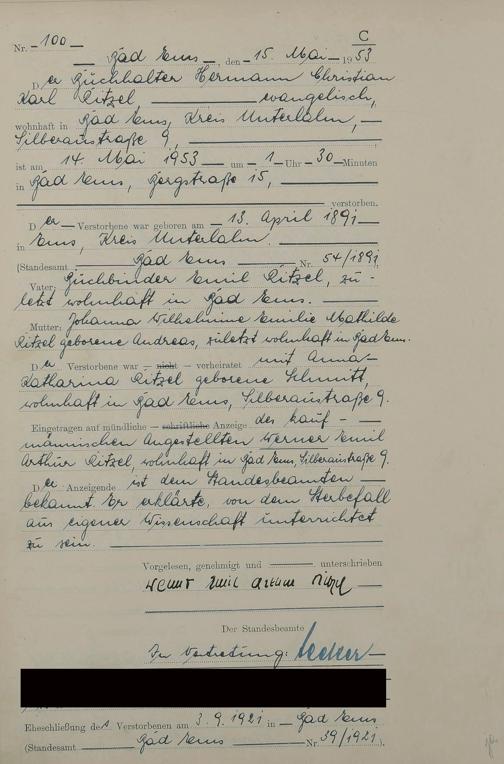 C
Nr. 100
Bad Ems, den 15. Mai 1953
Der Buchhalter Hermann Christian
Karl Ritzel, evangelisch,
wohnhaft in Bad Ems, Kreis Unterlahn,
Silberaustraße 9,
ist am 14. Mai 1953 um 1 Uhr 30 Minuten
in Bad Ems, Bergstraße 15,
verstorben.
Der Verstorbene war geboren am 13. April 1891
in Ems, Kreis Unterlahn.
(Standesamt Bad Ems Nr. 54/1891
Vater: Buchbinder Emil Ritzel, zu-
letzt wohnhaft in Bad Ems.
Mutter: Johanna Wilhelmine Emilie Mathilde
Ritzel geborene Andreas, zuletzt wohnhaft in Bad Ems.
Der Verstorbene war – nicht – verheiratet mit Anna
Katharina Ritzel geborene Schmitt,
wohnhaft in Bad Ems, Silberaustraße 9.
Eingetragen auf mündliche – schriftliche Anzeige des kauf-
männischen Angestellten Werner Emil
Arthur Ritzel, wohnhaft in Bad Ems, Silberaustraße 9.
Der Anzeigende ist dem Standesbeamten
bekannt. Er erklärte, von dem Sterbefall
aus eigener Wissenschaft unterrichtet
zu sein.
Vorgelesen, genehmigt und unterschrieben
Werner Emil Arthur Ritzel
Der Standesbeamte
In Vertretung:
Eheschließung des Verstorbenen am 3.9.1921 in Bad Ems
(Standesamt Bad Ems Nr. 39/1921).